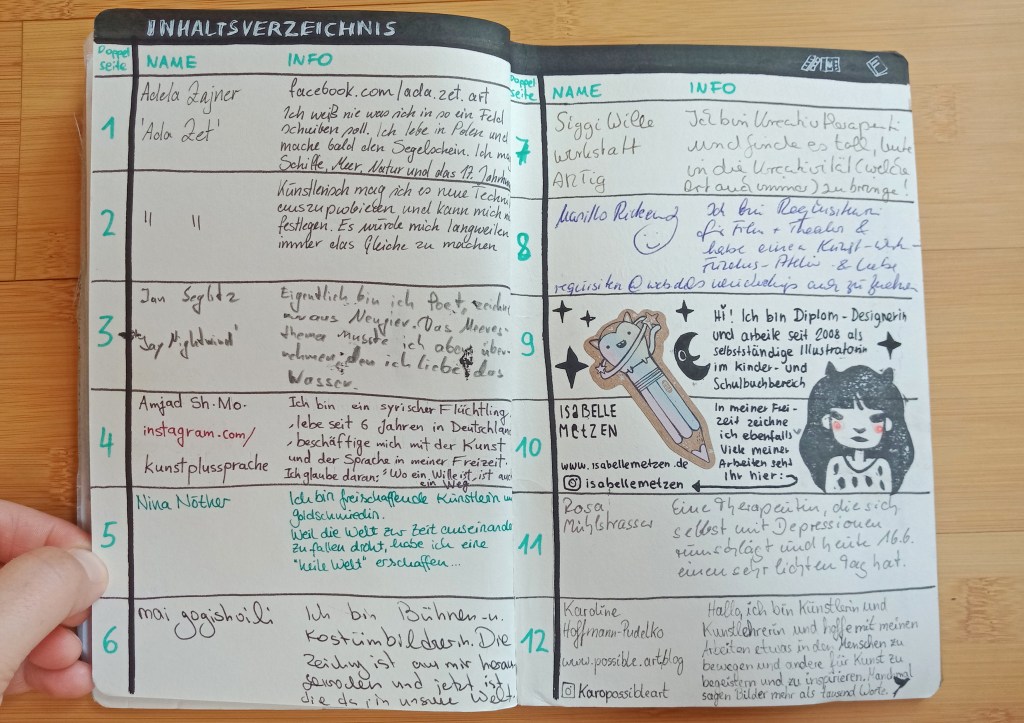 INHALTSVERZEICHNIS
Doppel
seite
NAME INFO
1
Adela Zajner
'Ada Zet'
facebook.com/ada.zet.art
Ich weiß nie was ich in so ein Feld
schreiben soll. Ich lebe in Polen und
mache bald den Segelschein. Ich mag
Schiffe, Meer, Natur und das 17. Jahrhun
2
" "
Künstlerisch mag ich es neue Techni
auszuprobieren und kann mich n
festlegen. Es würde mich langweilen
immer das Gleiche zu machen
3
Jan Seglitz
"Jay Nightwind"
Eigentlich bin ich Poet, zeichne
nur aus Neugier. Das Meeres-
thema musste ich aber über-
nehmen, den ich liebe das
Wasser.
4
Amjad Sh. Mo.
instagram.com/
kunstplussprache
Ich bin ein syrischer Flüchtling,
, lebe seit 6 Jahren in Deutschland
, beschäftige mich mit der Kunst
und der Sprache in meiner Freizeit.
Ich glaube daran: "Wo ein Wille ist, ist auch
ein Weg
5
Nina Nöther
Ich bin freischaffende Künstlerin u
Goldschmiedin.
Weil die Welt zur Zeit auseinande
zu fallen droht, habe ich eine
"heile Welt" erschaffen...
6
mai gogishvili
Ich bin Bühnen-u.
Kostümbildnerin. Die
Zeichung ist aus mir heraus
geworden und jetzt ist
die da in unsere Welt.
Doppel
seite
NAME INFO
7
Siggi Wille
Werkstatt
ARTig
Ich bin Kreativtherapeuti
und finde es toll, Leute
in die Kreativität (welche
Art auch immer) zu bringe!
8
Ich bin Requisiteurin
für Film + Theater &
habe einen Kunst-
Fundus-Atelier &
requisiten@web.de zu
9
10
ISABELLE
METZEN
www.isabellemetzen.de
isabellemetzen
Hi! Ich bin Diplom-Designerin
und arbeite seit 2008 als
selbstständige Illustratorin
im Kinder- und
Schulbuchbereich
In meiner Frei-
zeit zeichne
ich ebenfalls
Viele meiner
Arbeiten seht
Ihr hier:
11
Rosa
Mühlstrasser
Eine Therapeutin, die sich
selbst mit Depressionen
rumschlägt und heute 16.6.
einen sehr lichten Tag hat.
12
Karoline
Hoffmann-Pudelko
www.possible.art/blog
Karopossibleart
Hallo, ich bin Künstlerin und
Kunstlehrerin und hoffe mit meinen
Arbeiten etwas in den Menschen zu
bewegen und andere für Kunst zu
begeistern und zu inspirieren. Manchmal
sagen Bilder mehr als tausend Worte.